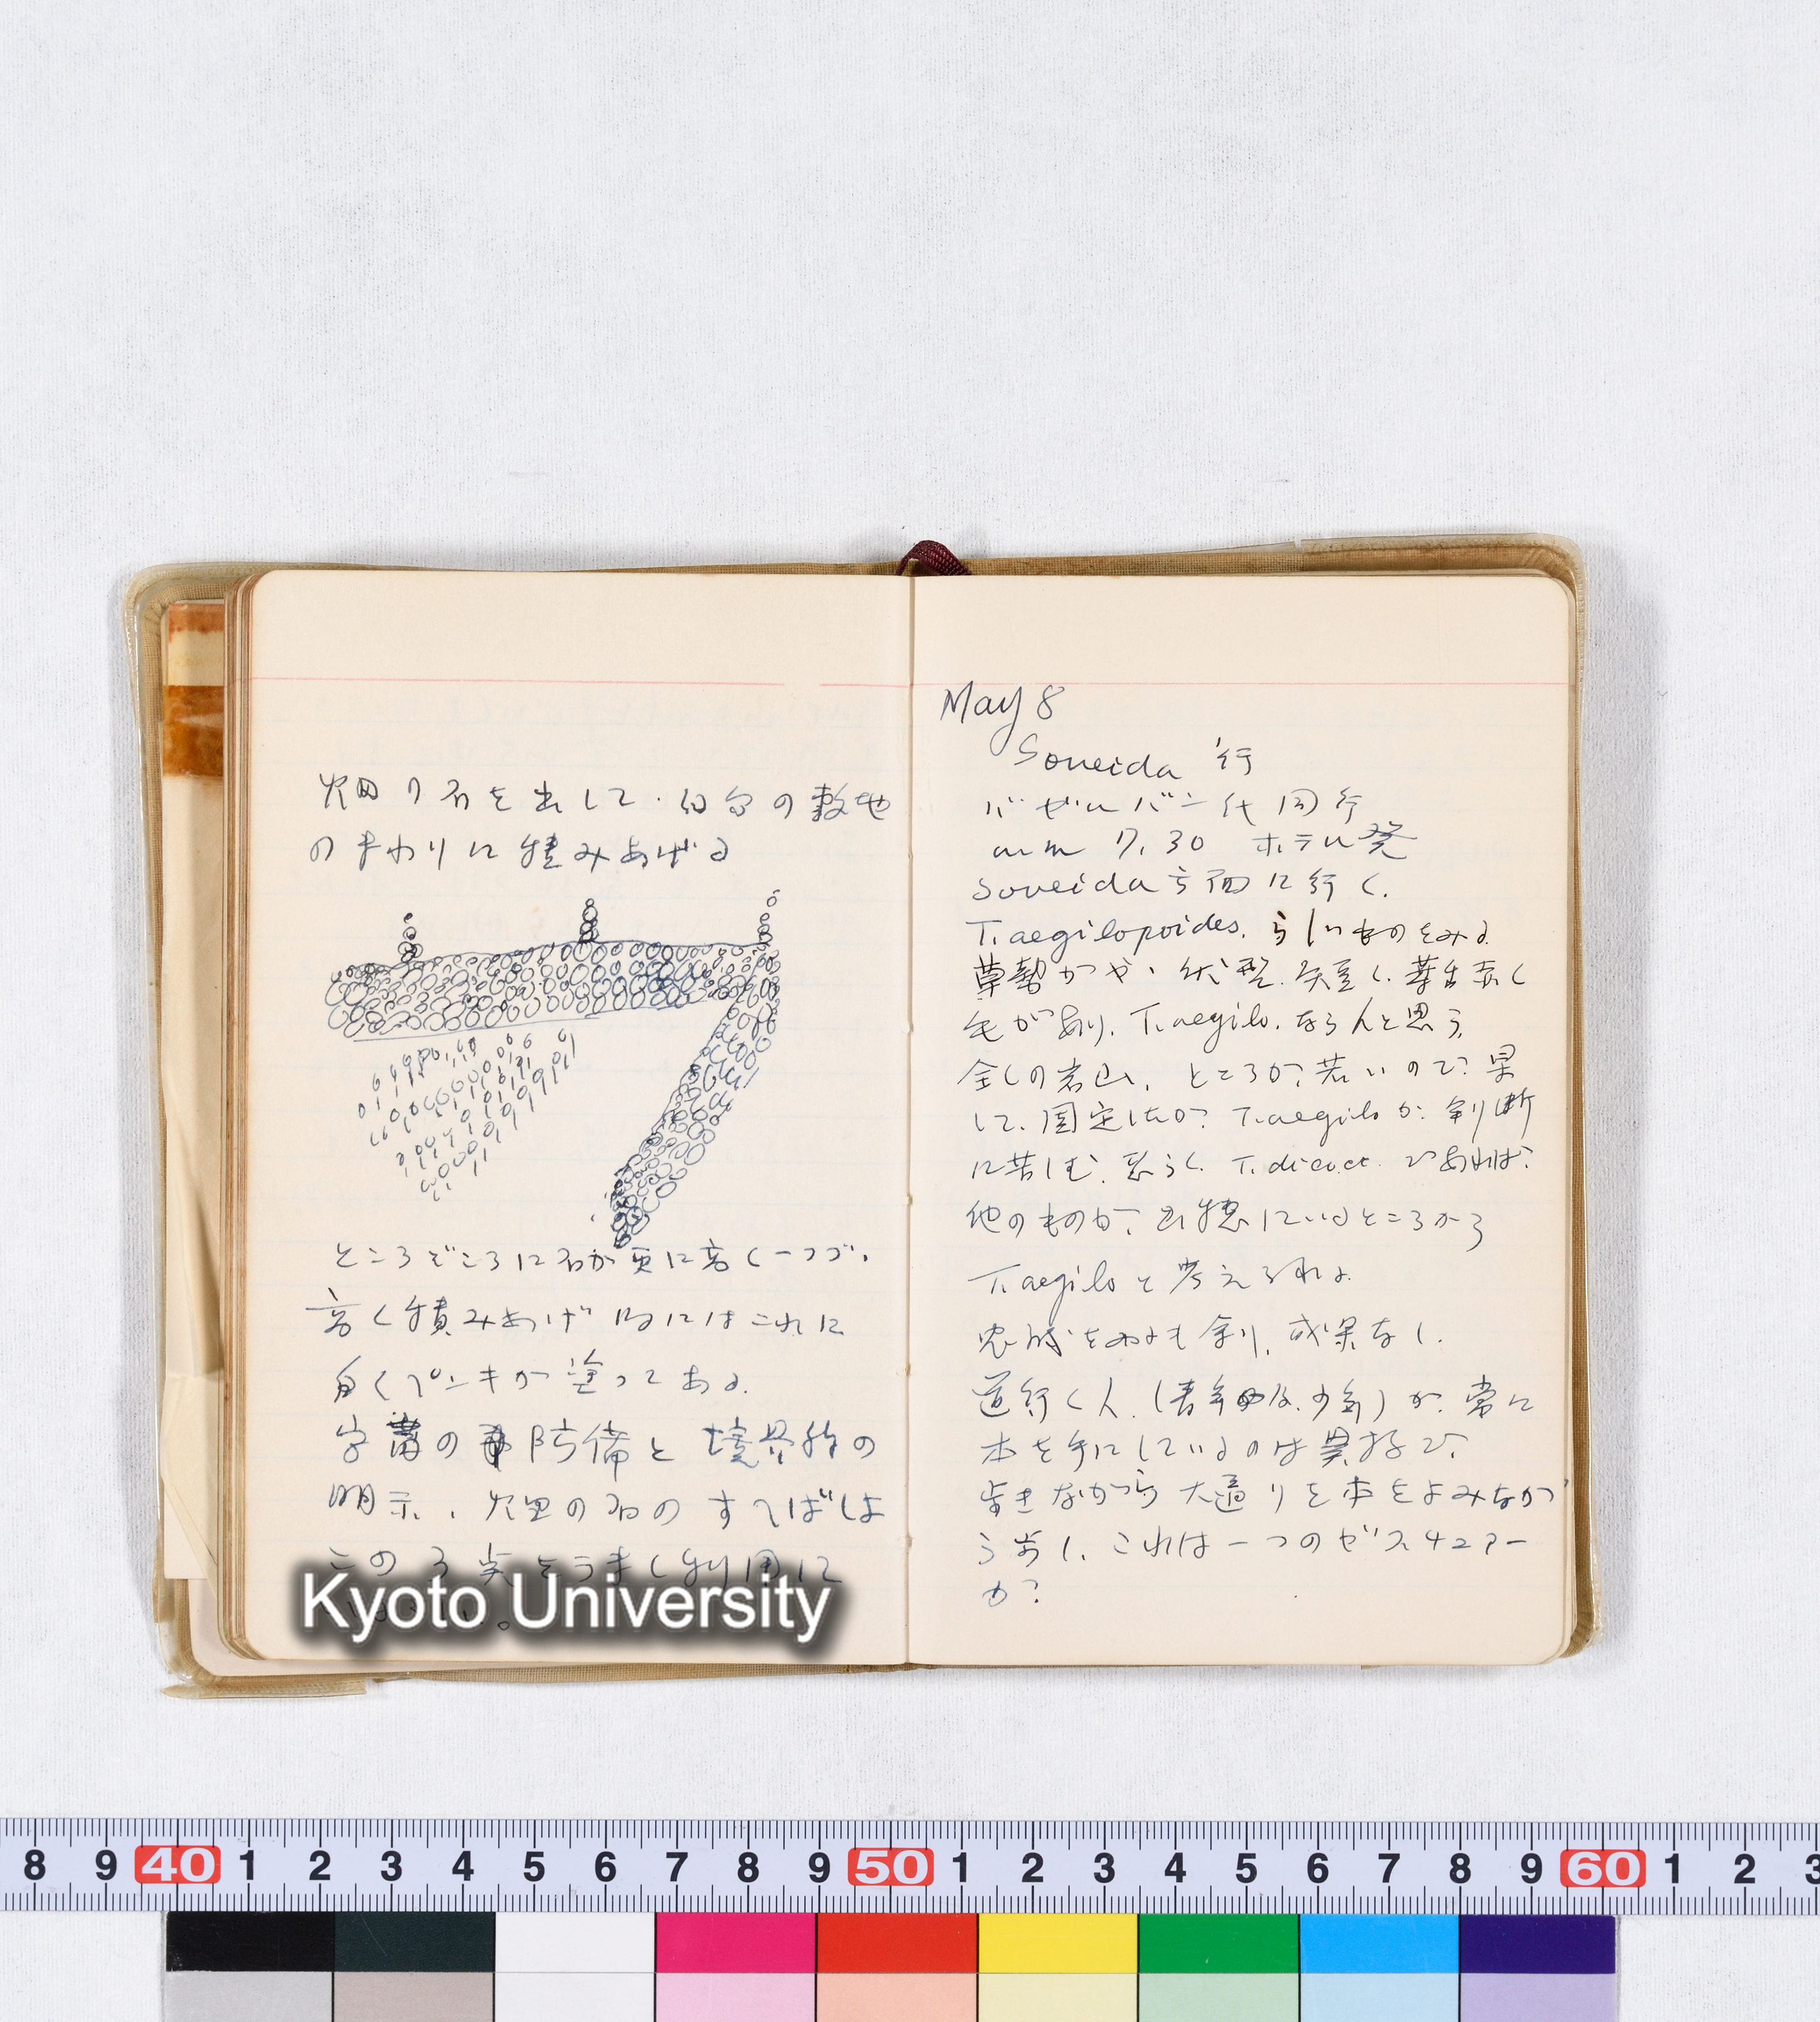 畑の石を出して、自分の敷地
のまわりに積みあげる
ところどころに石が更に高く一つづゝ
高く積みあげ 時にはこれに
白くペンキが塗ってある。
の 防備と境界の
明示、畑の石のすてばしよ
この3点をうまく利用して
Kyoto University
May 8
Soueida 行
同行
am 7.30 ホテル発
Soueida方面に行く。
T. aegilopoides. らしいものをみる
毛があり、T. aegilo. ならんと思う。
全くの岩山、ところが若いので果
して、固定したか? T. aegiloか 判断
に苦しむ。恐らく T. dicocct. であれば
他のものが 出穂しているところから
T. aegilo と考えられる
成果なし。
道行く人(青年及少年)が常に
本を手にしているのは異様で
歩きながら大通りを本をよみなが
ら歩く。これは一つのゼスチュアー
か?
8 9 40 1 2 3 4 5 6 7 8 9 50 1 2 3 4 5 6 7 8 9 60 1 2 3